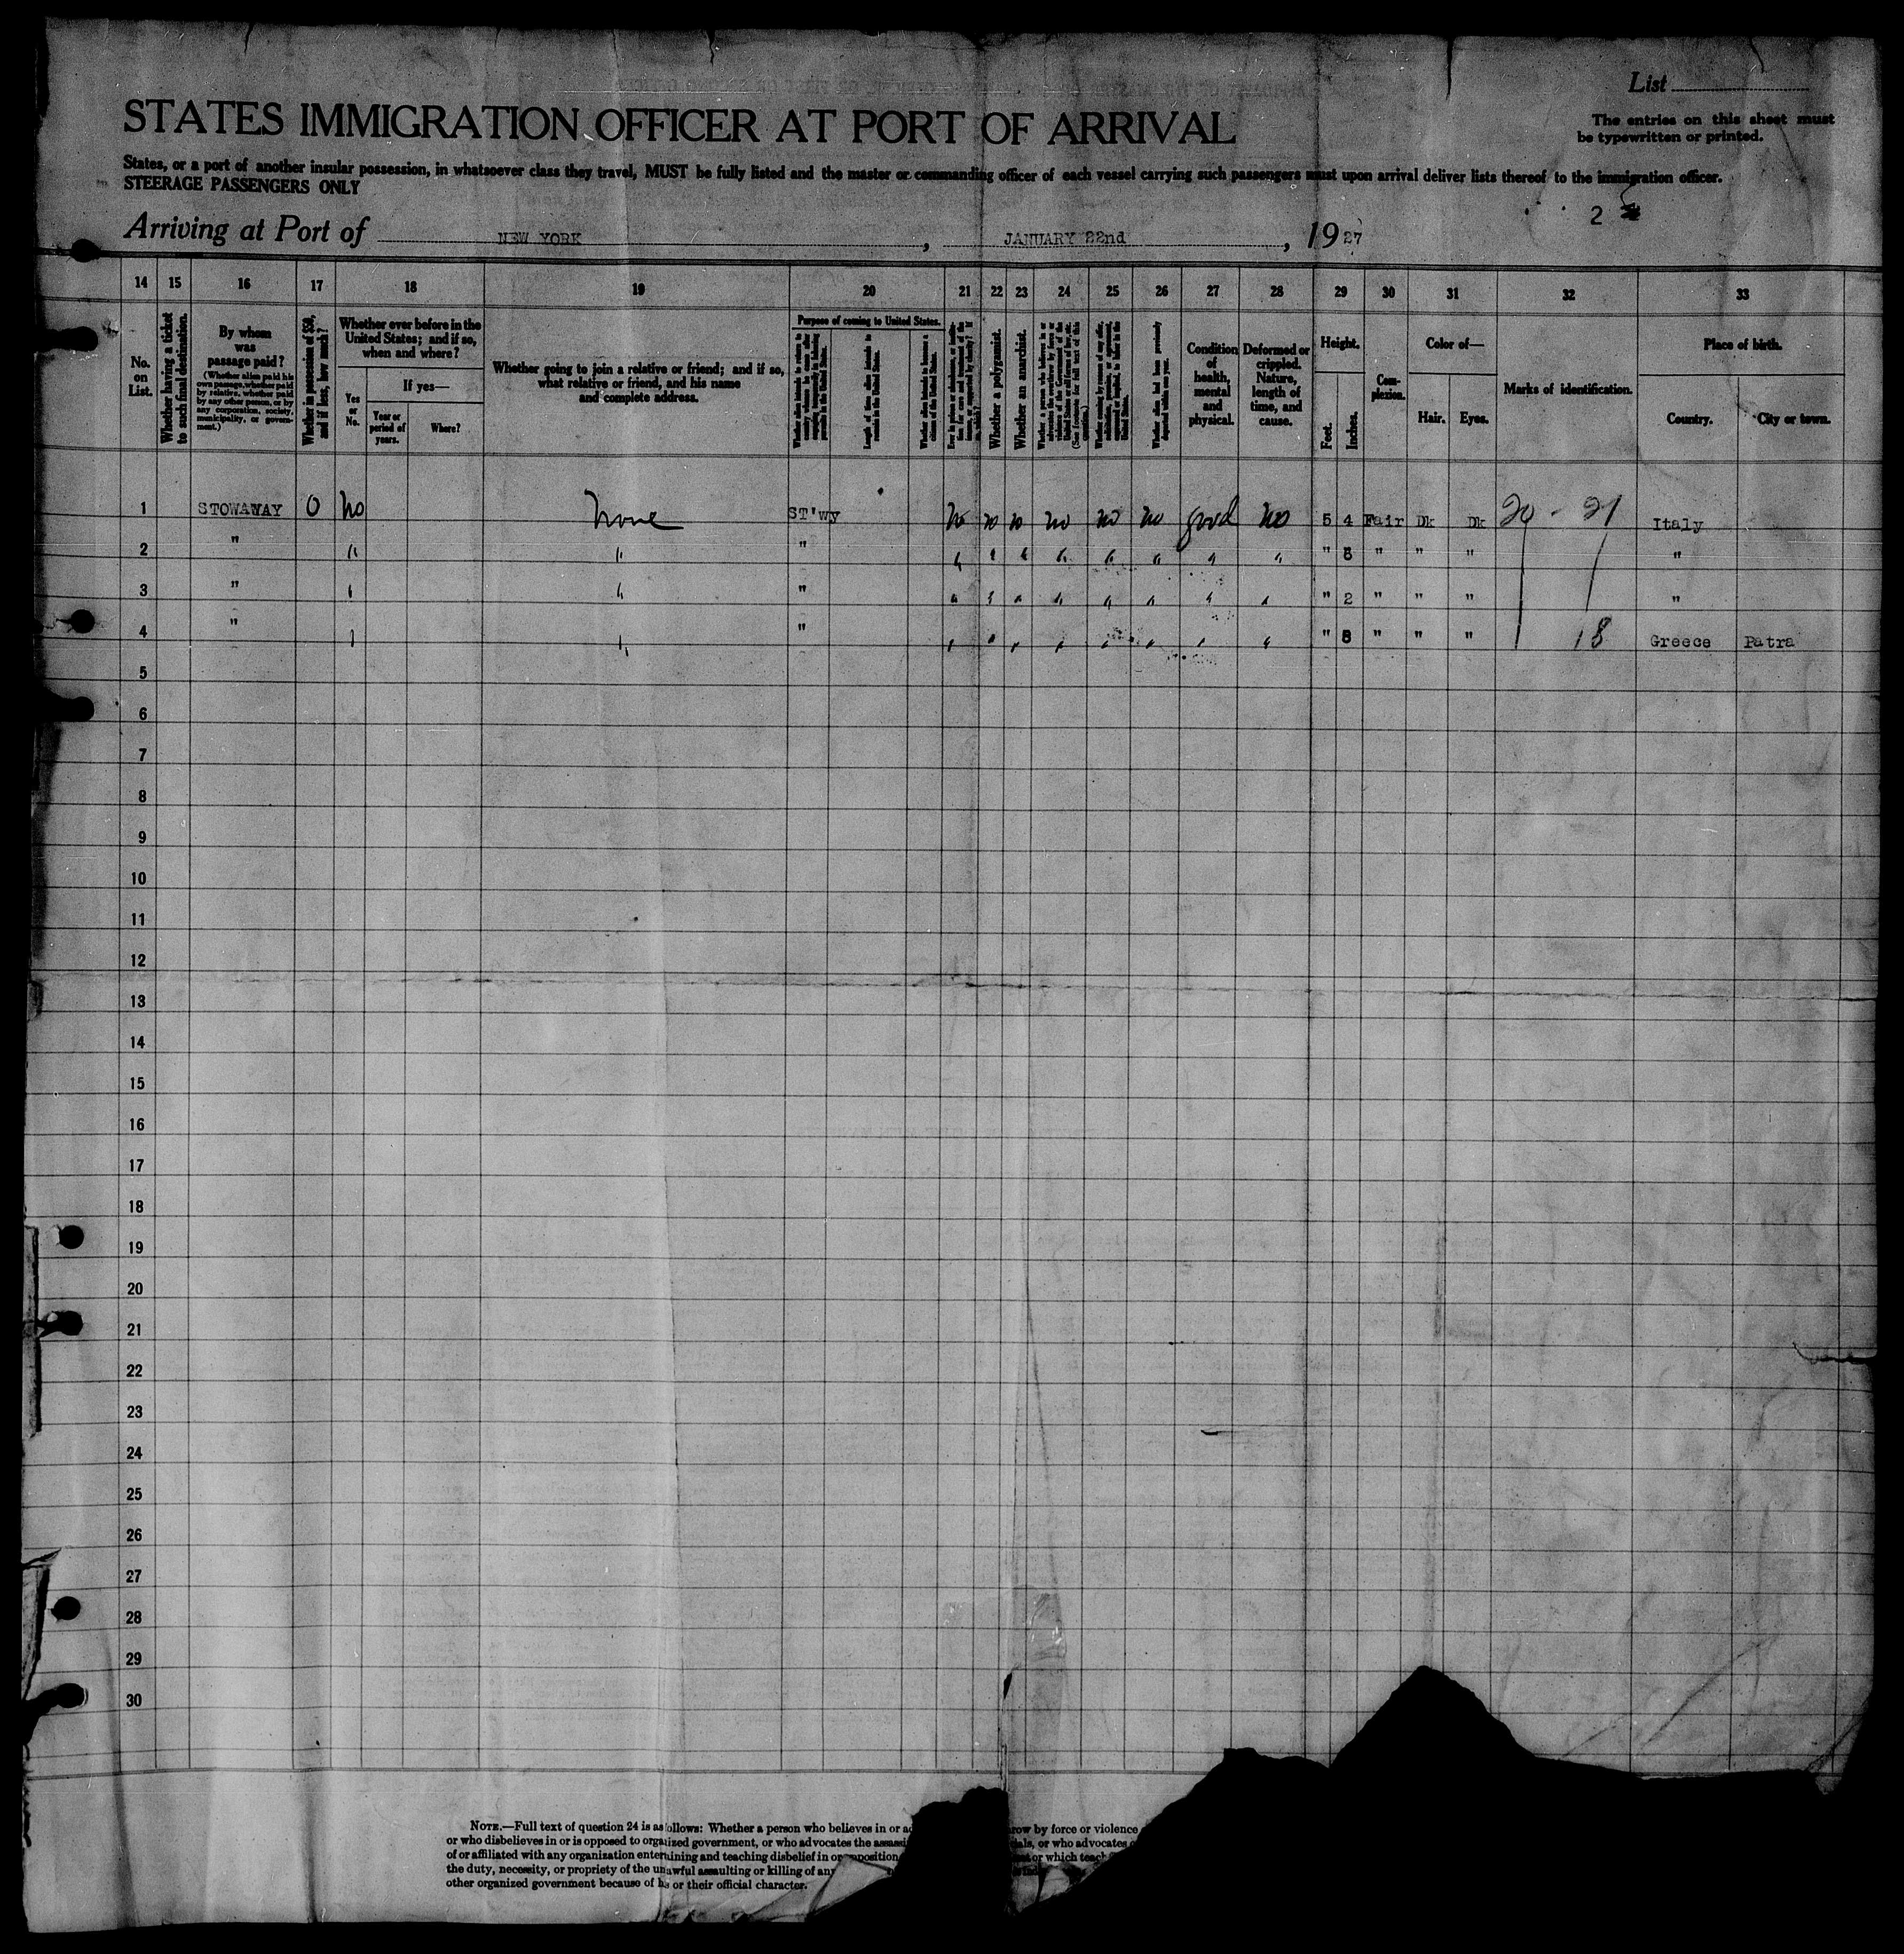 List
STATES IMMIGRATION OFFICER AT PORT OF ARRIVAL
The entries on this sheet must
be typewritten or printed.
States, or a port of another insular possession, in whatsoever class they travel, MUST be fully listed and the master or commanding officer of each vessel carrying such passengers must upon arrival deliver lists thereof to the immigration officer.
STEERAGE PASSENGERS ONLY
2
Arriving at Port of NEW YORK, JANUARY 22nd, 1927
14 15 16 17 18 19 20 21 22 23 24 25 26 27 28 29 30 31 32 33
No. on List.
Whether having a ticket to such final destination.
By whom was passage paid?
(Whether alien paid his own passage, whether paid by relative, whether paid by any other person, or by any corporation, society, municipality, or government.)
Whether in possession of $50, and if less, how much?
Whether ever before in the United States; and if so, when and where?
Yes or No.
If yes—
Year or period of years.
Where?
Whether going to join a relative or friend; and if so, what relative or friend, and his name and complete address.
Purpose of coming to United States.
Length of time alien intends to remain in the United States.
Whether alien intends to become a citizen of the United States.
Whether a polygamist.
Whether an anarchist.
Whether alien had been previously deported within one year.
Condition of health, mental and physical.
Deformed or crippled. Nature, length of time, and cause.
Height.
Feet.
Inches.
Complexion.
Color of—
Hair.
Eyes.
Marks of identification.
Place of birth.
Country.
City or town.
1 STOWAWAY 0 no none ST'wy no no no no no no good no 5 4 Fair Dk Dk 20 - 21 Italy
2 " " " " " " " " " " " " " 5 " " " "
3 " " " " " " " " " " " " " 2 " " " "
4 " " " " " " " " " " " " " 8 " " " 18 Greece Patra
5
6
7
8
9
10
11
12
13
14
15
16
17
18
19
20
21
22
23
24
25
26
27
28
29
30
NOTE.—Full text of question 24 is as follows: Whether a person who believes in or by force or violence
or who disbelieves in or is opposed to organized government, or who advocates the or who advocates
of or affiliated with any organization entertaining and teaching disbelief in or opposition or which teach
the duty, necessity, or propriety of the unlawful assaulting or killing of any
other organized government because of his or their official character.